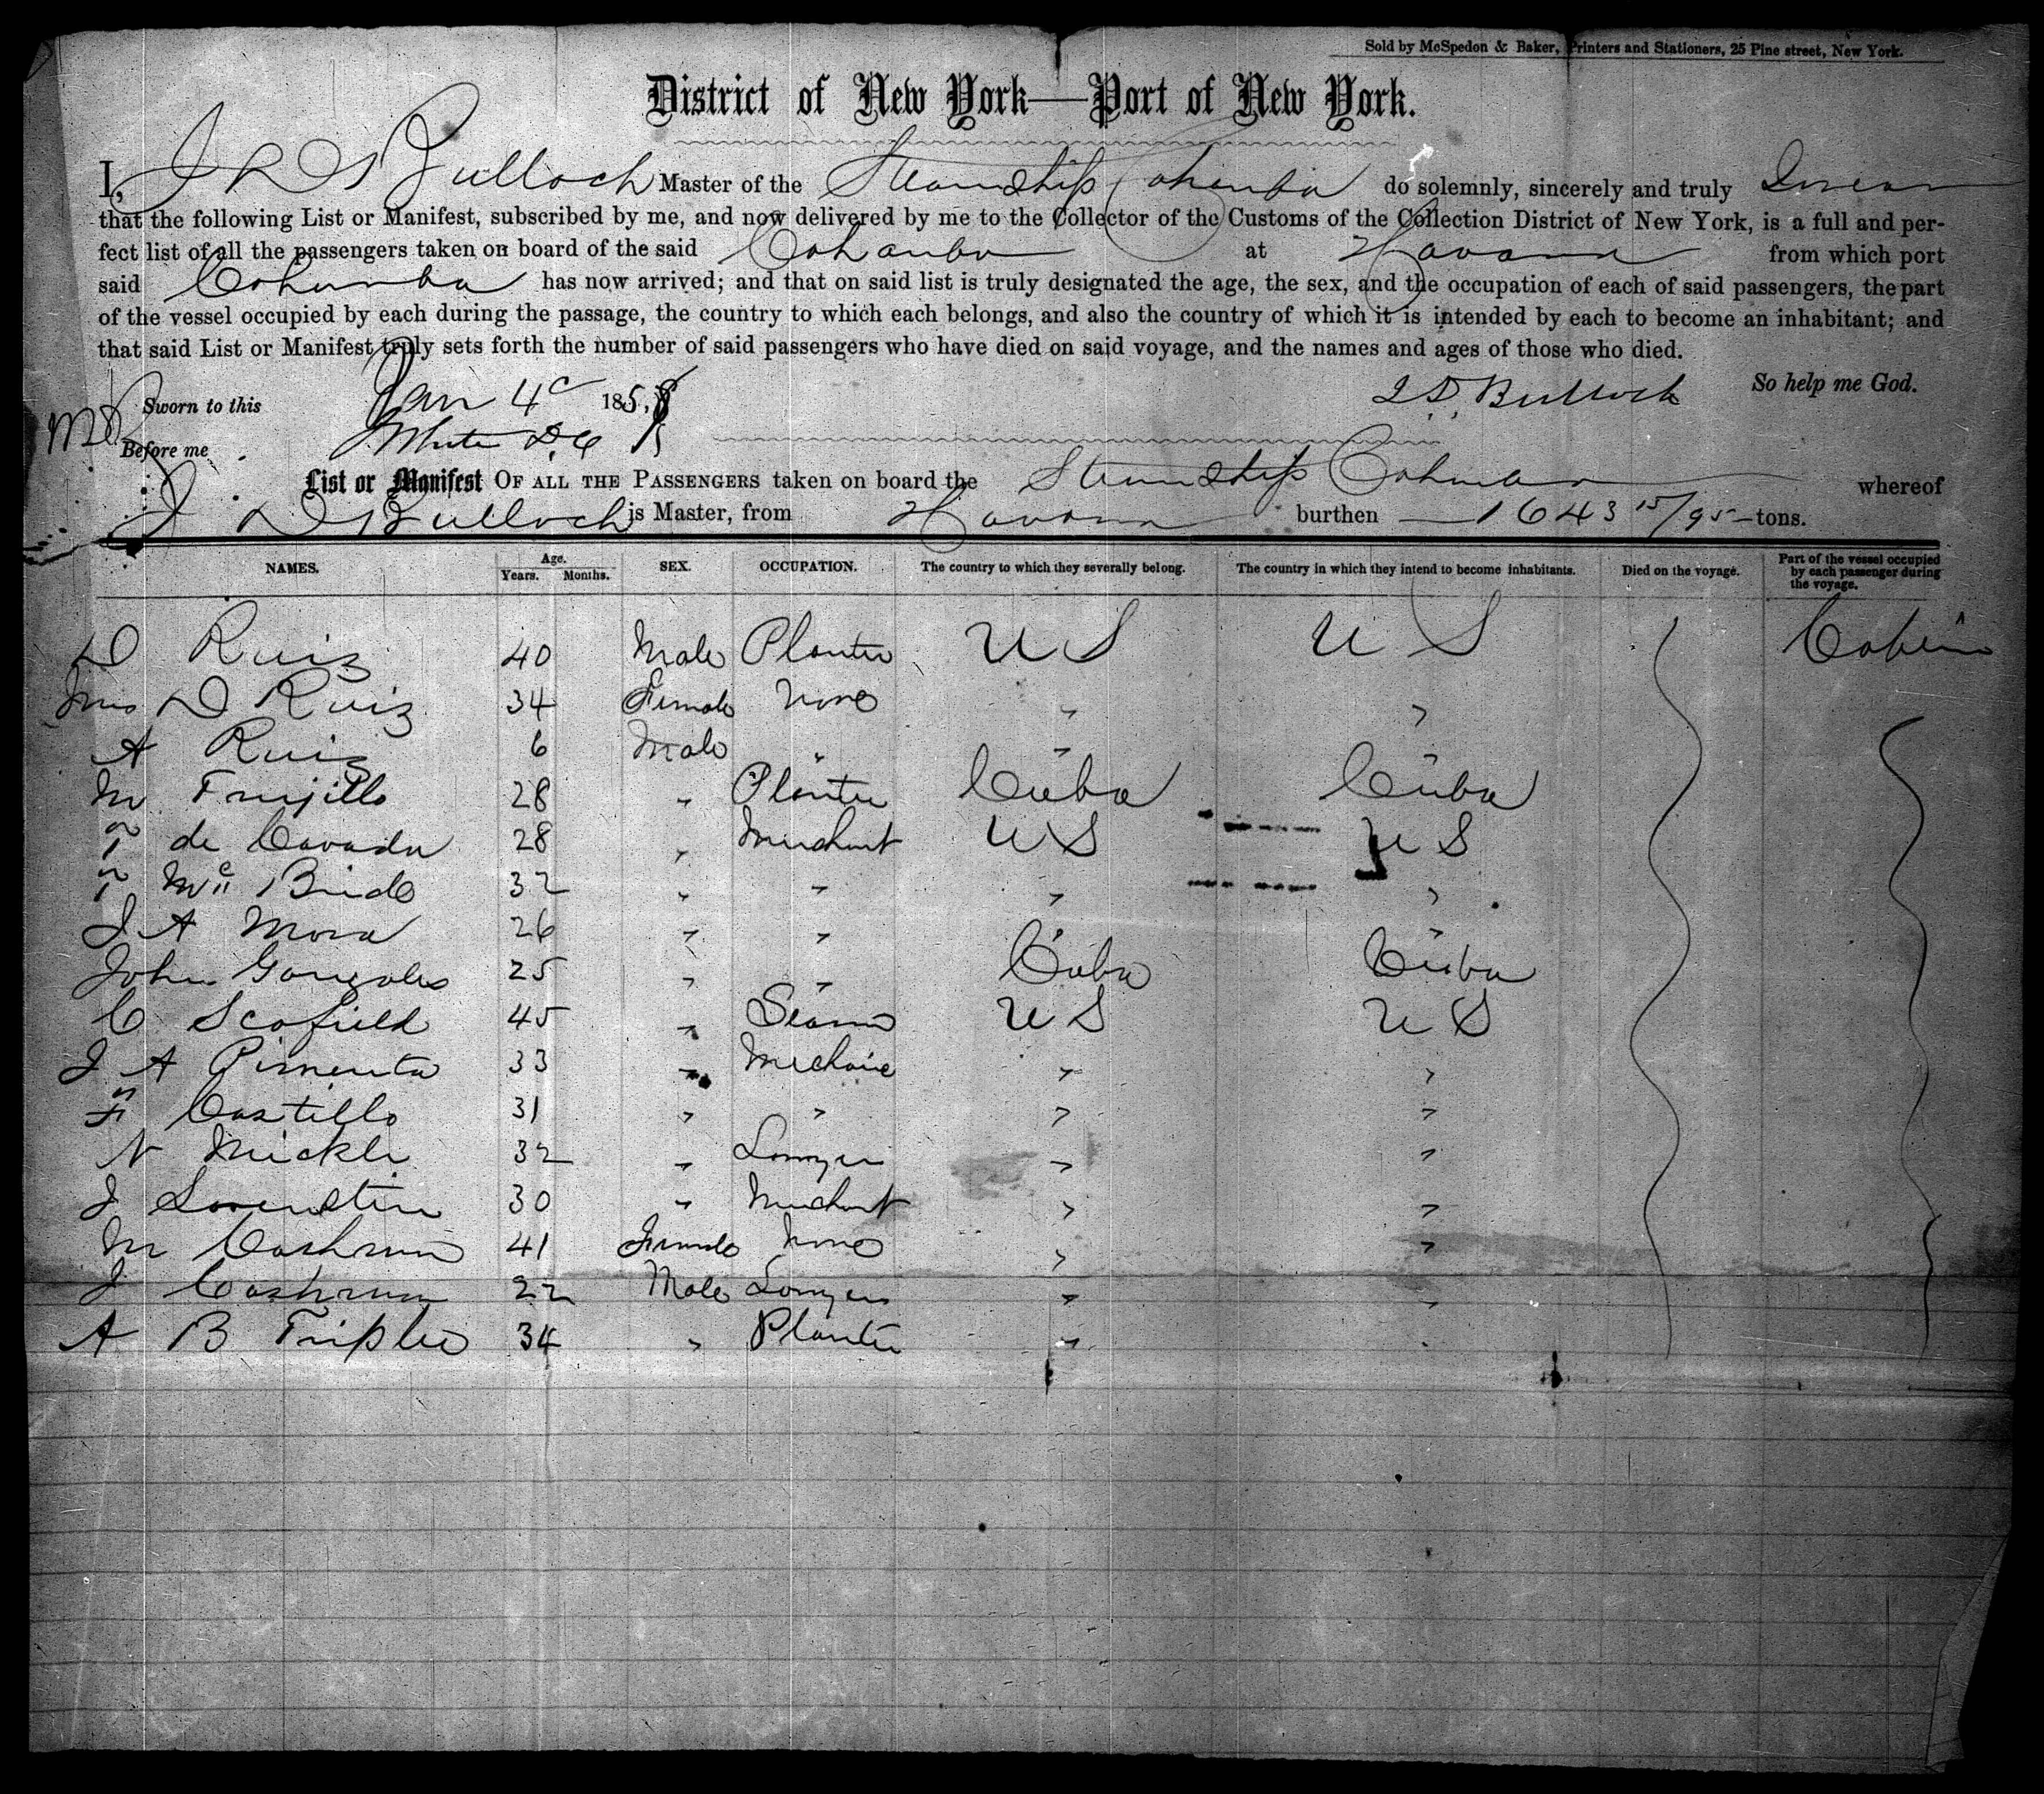 Sold by McSpedon & Baker, Printers and Stationers, 25 Pine street, New York.
District of New York—Port of New York.
I, J D Bulloch Master of the Steamship Cahawba do solemnly, sincerely and truly Swear
that the following List or Manifest, subscribed by me, and now delivered by me to the Collector of the Customs of the Collection District of New York, is a full and per-
fect list of all the passengers taken on board of the said Cahawba at Havana from which port
said Cahawba has now arrived; and that on said list is truly designated the age, the sex, and the occupation of each of said passengers, the part
of the vessel occupied by each during the passage, the country to which each belongs, and also the country of which it is intended by each to become an inhabitant; and
that said List or Manifest truly sets forth the number of said passengers who have died on said voyage, and the names and ages of those who died.
So help me God.
Sworn to this Jan 4 1858 J D Bulloch
Before me White D C
List or Manifest OF ALL THE PASSENGERS taken on board the Steamship Cahawba whereof
J D Bulloch is Master, from Havana burthen 1643 15/95 tons.
NAMES. Age. Years. Months. SEX. OCCUPATION. The country to which they severally belong. The country in which they intend to become inhabitants. Died on the voyage. Part of the vessel occupied by each passenger during the voyage.
D Ruiz 40 Male Planter U S U S Cabin
Mrs D Ruiz 34 Female None " "
A Ruiz 6 Male " " "
M Trujillo 28 " Planter Cuba Cuba
F de Cavada 28 " Merchant U S U S
F Mc Bride 32 " " " "
J A Mora 26 " " " "
John Gonzales 25 " " Cuba Cuba
C Scofield 45 " Seaman U S U S
J A Pimenta 33 " Mechanic " "
F Castillo 31 " " " "
N Mickle 32 " Lawyer " "
J Lovenstein 30 " Merchant " "
M Cashman 41 Female None " "
J Cashman 22 Male Lawyer " "
A B Triplee 34 " Planter " "